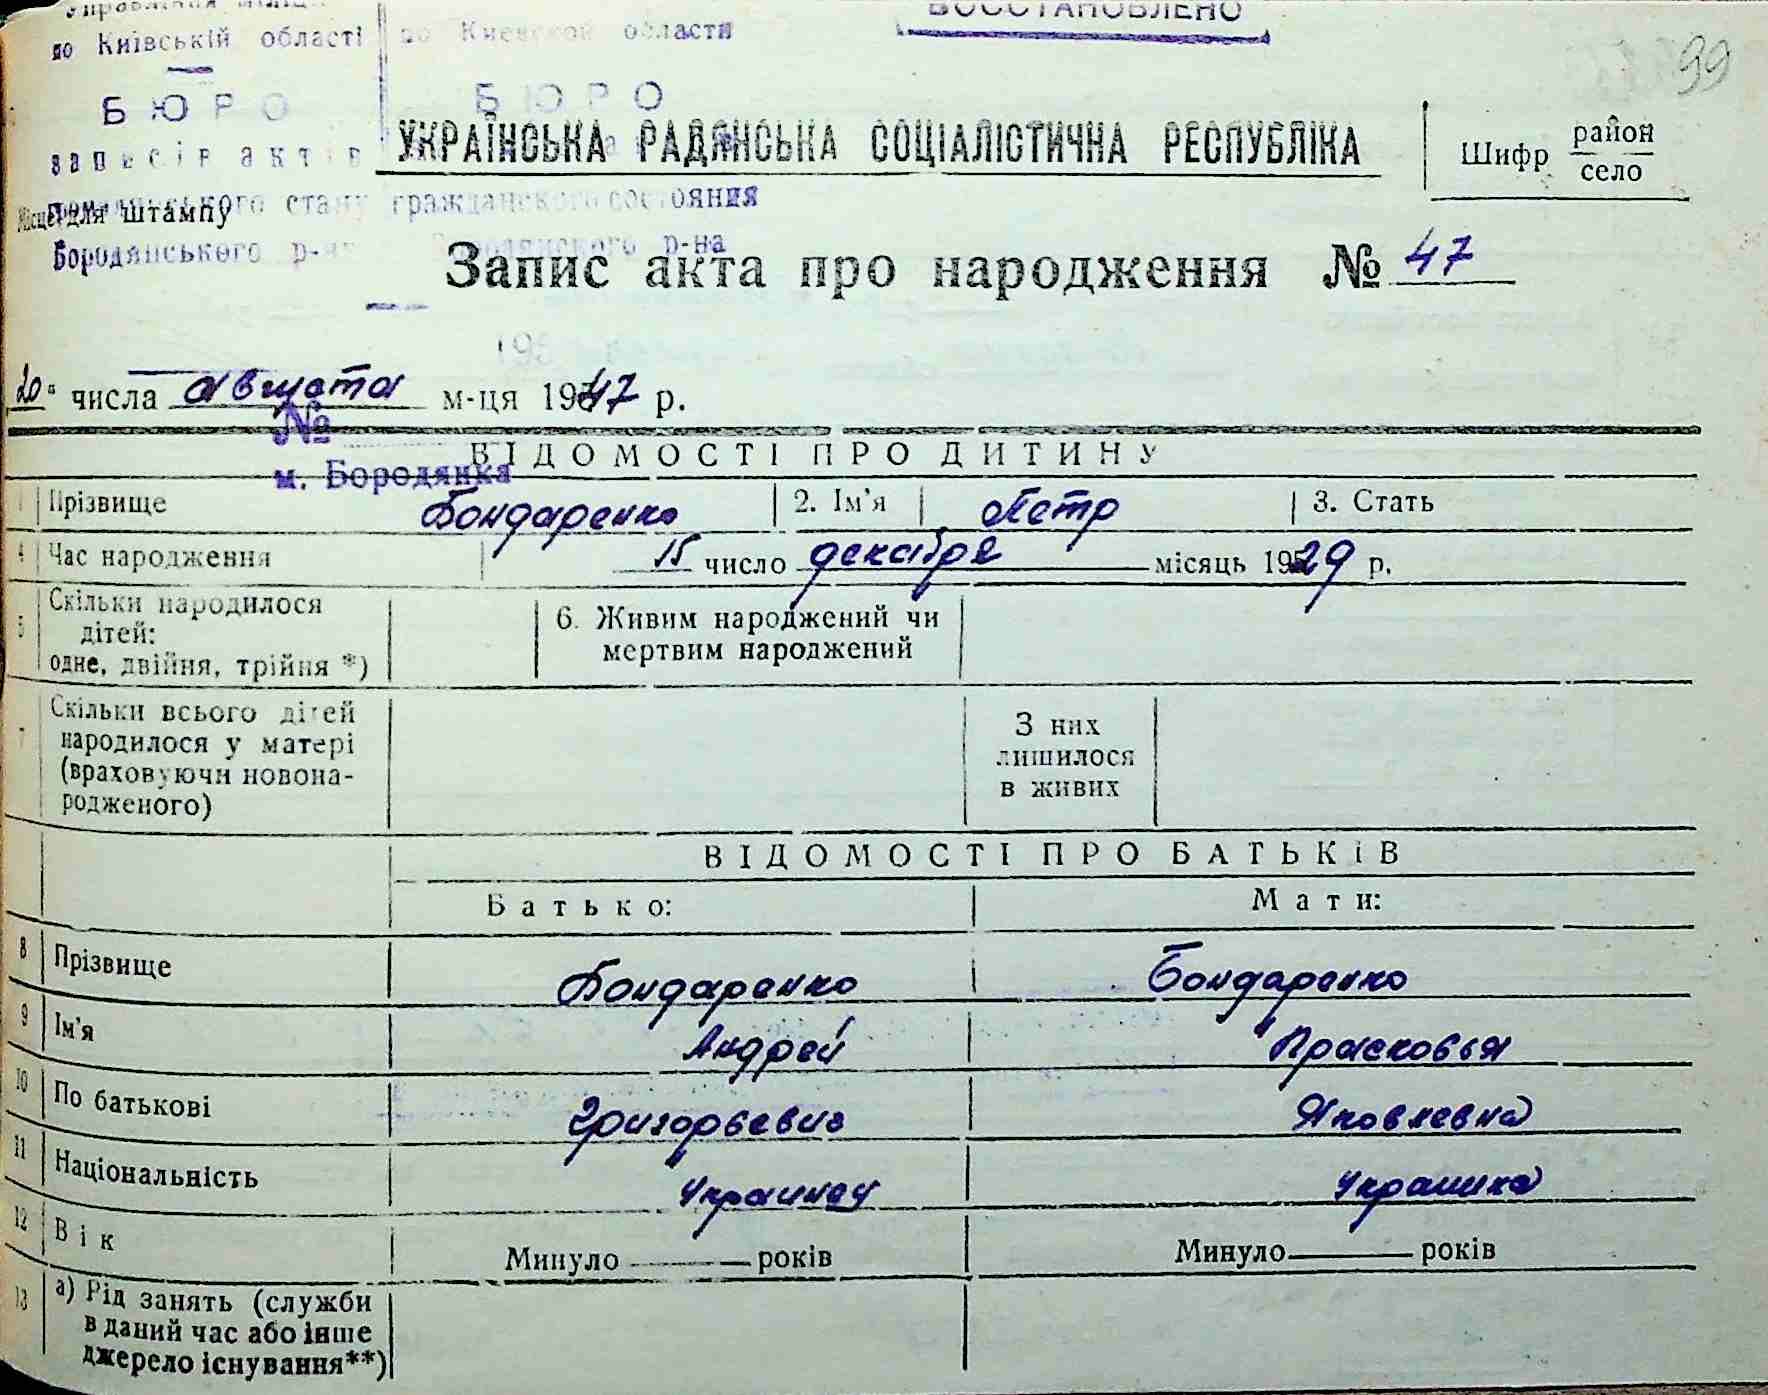 Управління міліції
по Київській області по Киевской области
ВОССТАНОВЛЕНО
99
БЮРО БЮРО
записів актів
УКРАЇНСЬКА РАДЯНСЬКА СОЦІАЛІСТИЧНА РЕСПУБЛІКА
Шифр район
село
громадянського стану гражданского состояния
Місце для штампу
Бородянського р-ну Бородянского р-на
Запис акта про народження № 47
195
„20“ числа августа м-ця 1947 р.
№
ВІДОМОСТІ ПРО ДИТИНУ
м. Бородянка
1 Прізвище Бондаренко 2. Ім'я Петр 3. Стать
4 Час народження 15 число декабря місяць 1929 р.
5 Скільки народилося
дітей:
одне, двійня, трійня *)
6. Живим народжений чи
мертвим народжений
7 Скільки всього дітей
народилося у матері
(враховуючи новона-
родженого)
З них
лишилося
в живих
ВІДОМОСТІ ПРО БАТЬКІВ
Батько: Мати:
8 Прізвище Бондаренко Бондаренко
9 Ім'я Андрей Прасковья
10 По батькові Григорьевич Яковлевна
11 Національність Украинец Украинка
12 Вік Минуло років Минуло років
13 а) Рід занять (служби
в даний час або інше
джерело існування**)